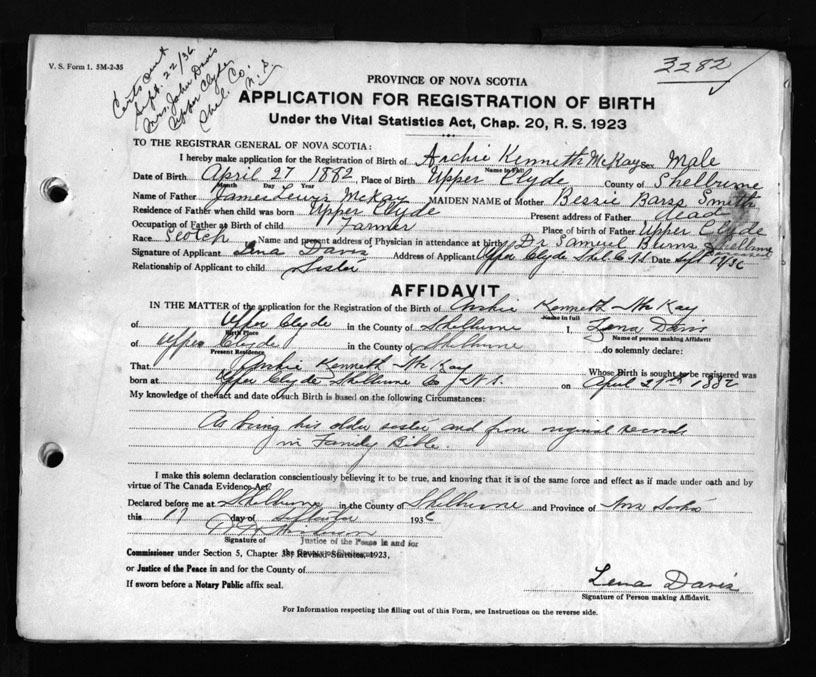 V. S. Form 1. 5M-2-35
Certs out
Sept. 22/36
Mrs John Davis
Upper Clyde
Shel. Co.
N. S.
3282
PROVINCE OF NOVA SCOTIA
APPLICATION FOR REGISTRATION OF BIRTH
Under the Vital Statistics Act, Chap. 20, R. S. 1923
TO THE REGISTRAR GENERAL OF NOVA SCOTIA:
I hereby make application for the Registration of Birth of Archie Kenneth McKay Sex Male
Name in Full
Date of Birth April 27 1882, Place of Birth Upper Clyde County of Shelburne
Month Day Year
Name of Father James Lewis McKay MAIDEN NAME of Mother Bessie Barss Smith
Residence of Father when child was born Upper Clyde Present address of Father dead
Occupation of Father at Birth of child Farmer Place of birth Upper Clyde
Race Scotch Name and present address of Physician in attendance at birth Dr Samuel Shelburne deceased
Signature of Applicant Lena Davis Address of Applicant Upper Clyde Shel. Co N.S. Date Sept 19/36
Relationship of Applicant to child Sister
AFFIDAVIT
IN THE MATTER of the application for the Registration of the Birth of Archie Kenneth McKay
Name in full
of Upper Clyde in the County of Shelburne I, Lena Davis
Birth Place Name of person making Affidavit
of Upper Clyde in the County of Shelburne do solemnly declare:
Present Residence
That Archie Kenneth McKay Whose Birth is sought to be registered was
born at Upper Clyde Shelburne Co N.S. on April 27th 1882
My knowledge of the fact and date of such Birth is based on the following Circumstances:
As being his older sister and from original records
in Family Bible.
I make this solemn declaration conscientiously believing it to be true, and knowing that it is of the same force and effect as if made under oath and by
virtue of The Canada Evidence Act?
Declared before me at Shelburne in the County of Shelburne and Province of Nova Scotia
this 19 day of September 1936
Signature of Justice of the Peace in and for
Commissioner under Section 5, Chapter Revised Statutes, 1923,
or Justice of the Peace in and for the County of
If sworn before a Notary Public affix seal.
Lena Davis
Signature of Person making Affidavit.
For Information respecting the filling out of this Form, see Instructions on the reverse side.